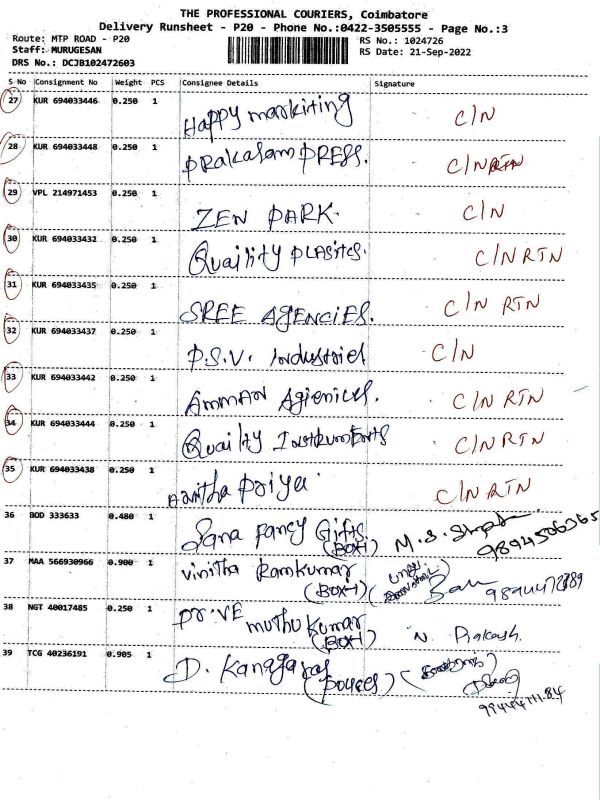 THE PROFESSIONAL COURIERS, Coimbatore
Delivery Runsheet - P20 - Phone No.:0422-3505555 - Page No.:3
Route: MTP ROAD - P20 RS No.: 1024726
Staff: MURUGESAN RS Date: 21-Sep-2022
DRS No.: DCJB102472603
S No Consignment No Weight PCS Consignee Details Signature
27 KUR 694033446 0.250 1 Happy markiting C/N
28 KUR 694033448 0.250 1 PRakasam PRESS. C/N RTN
29 VPL 214971453 0.250 1 ZEN PARK. C/N
30 KUR 694033432 0.250 1 Quaility PLASitcs. C/N RTN
31 KUR 694033435 0.250 1 SREE AGENCiES. C/N RTN
32 KUR 694033437 0.250 1 P.S.V. Industriel C/N
33 KUR 694033442 0.250 1 AMMAN Agienices. C/N RTN
34 KUR 694033444 0.250 1 Quaility Instruments C/N RTN
35 KUR 694033438 0.250 1 Haritha Priya C/N RTN
36 BOD 333633 0.480 1 Sana Fancy Gifts M.S.
(BOX1) 9894506365
37 MAA 566930966 0.900 1 Vinitha Ramkumar
(BOX1)
38 NGT 40017485 0.250 1 PR.VE muthu kumar N. Prakash.
(BOX1)
39 TCG 40236191 0.905 1 D. Kanagaraj